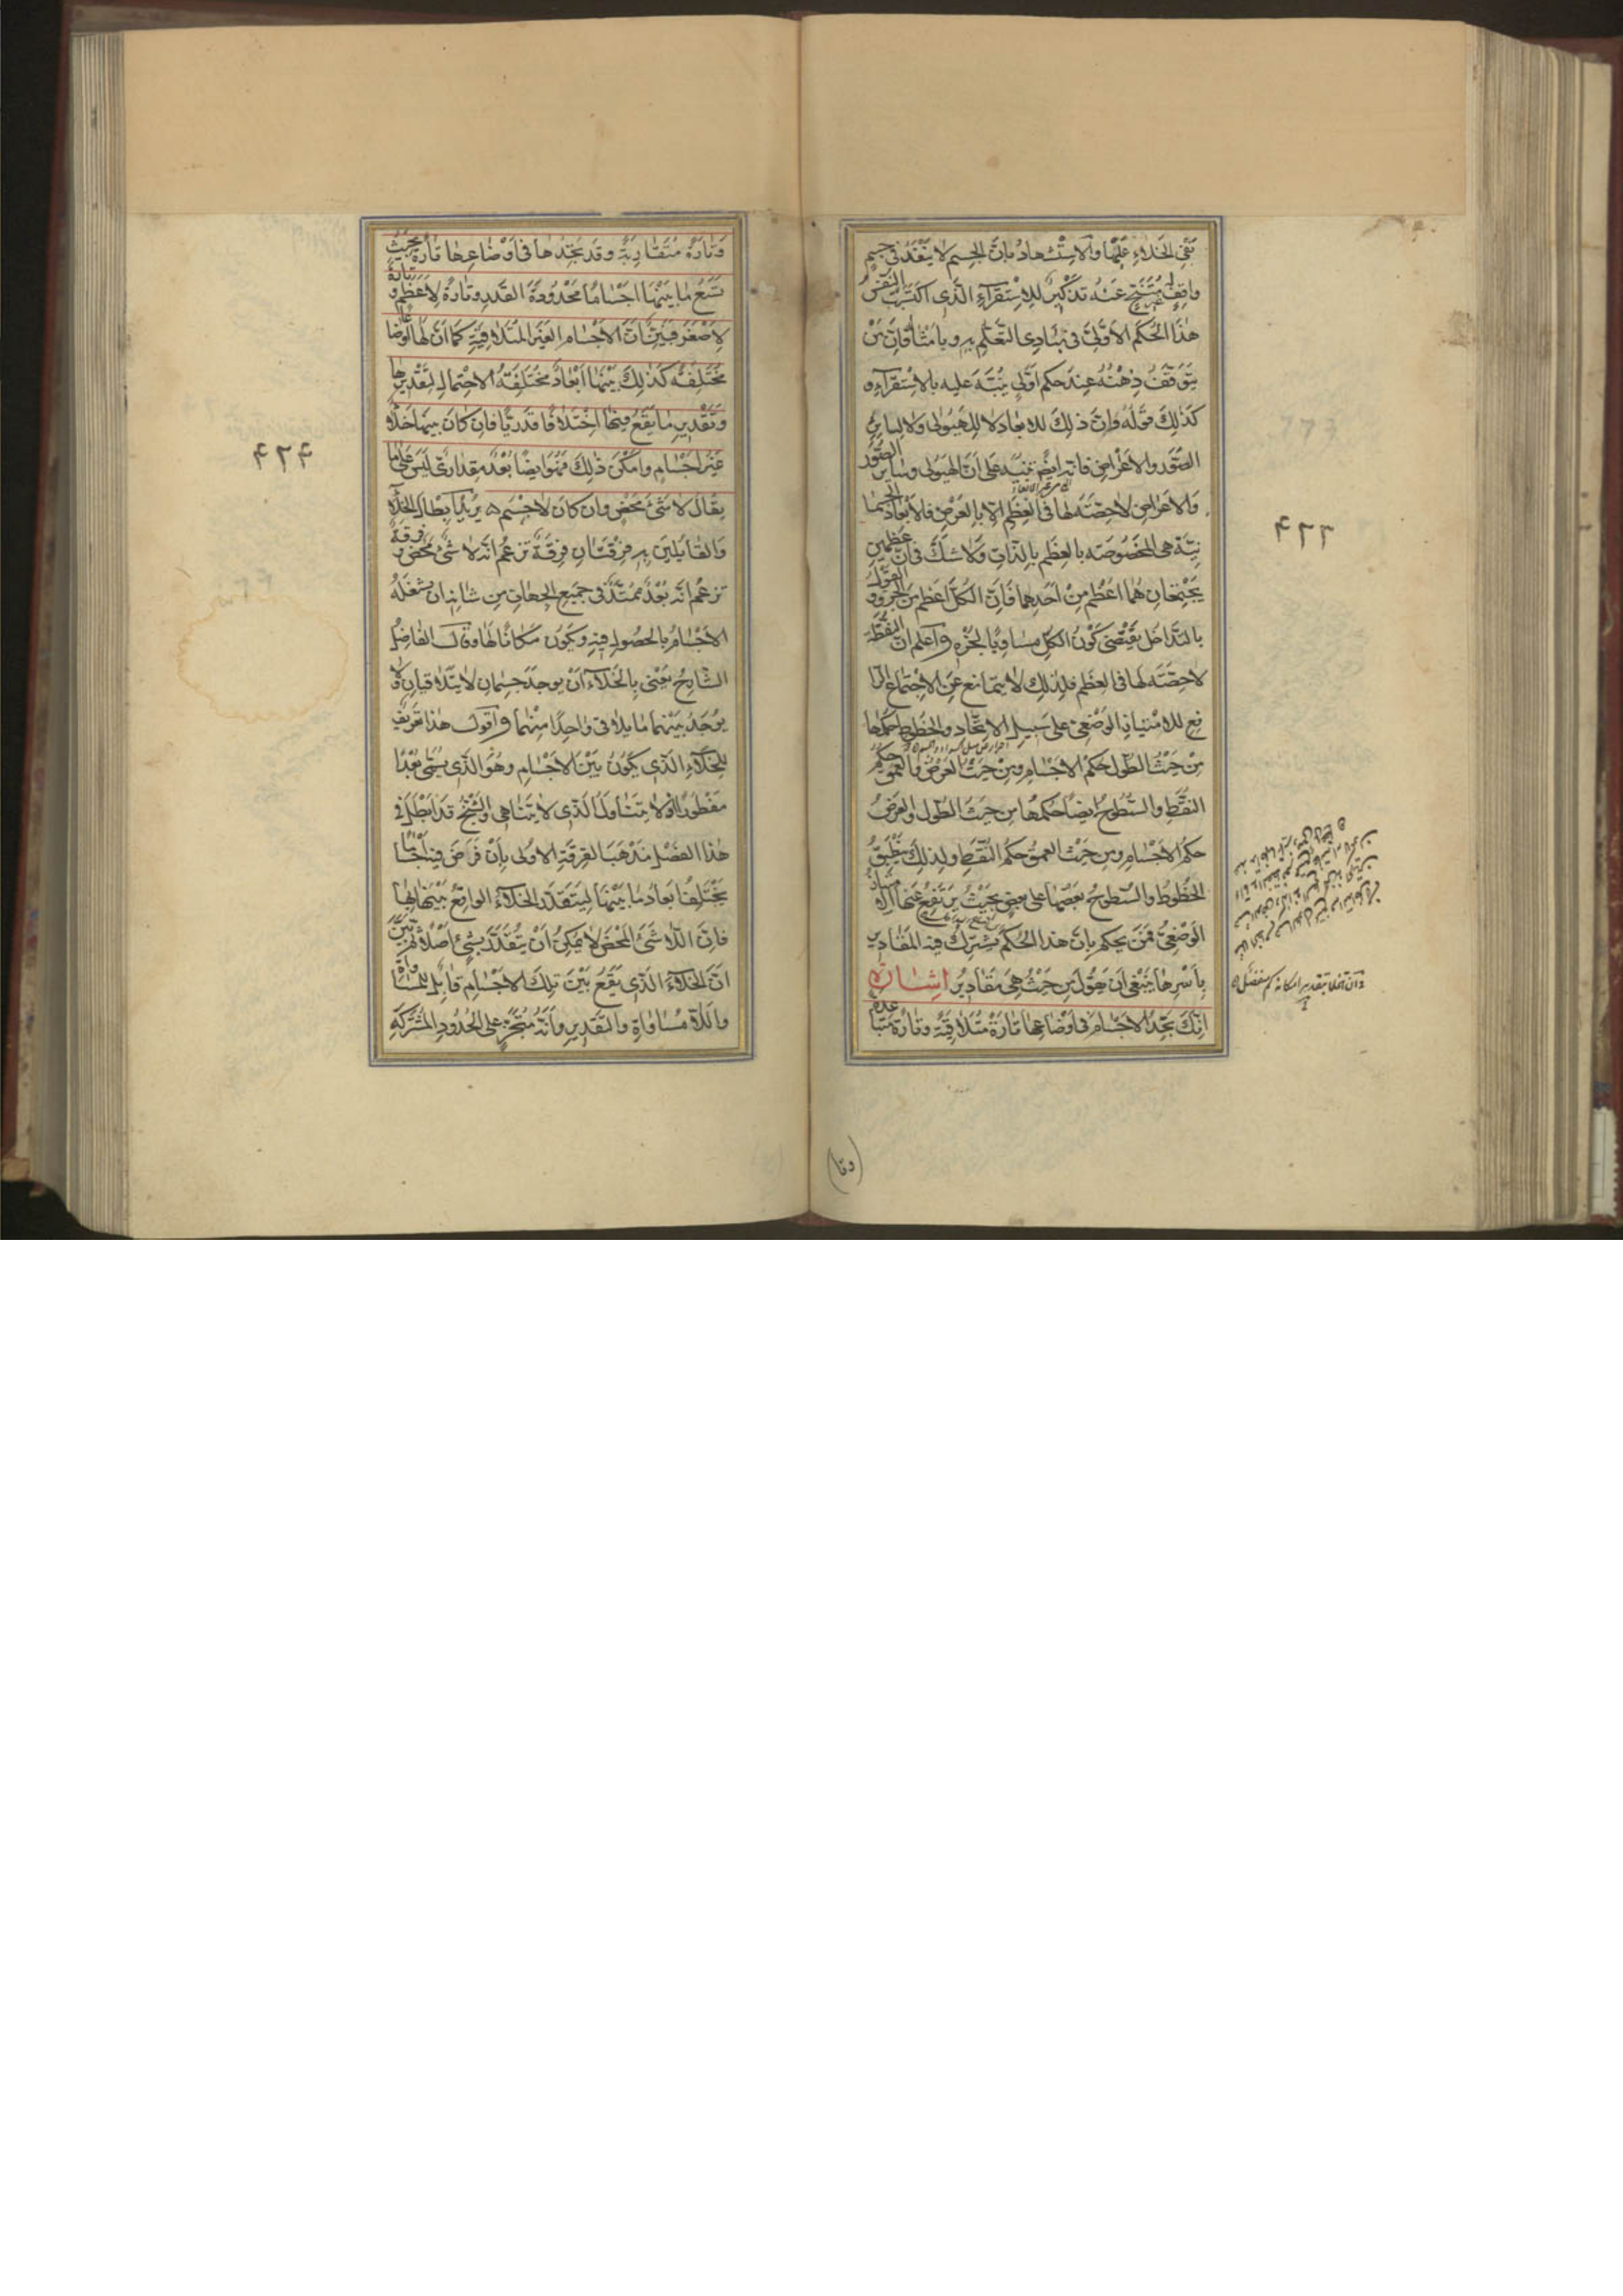 نفى الخلاء عليها والاستشهاد بان الجسم لا ينفذ فى جسم
واقف له متنح عنه تذكير للاستقراء الذى اكتسب النفس
هذا الحكم الاولى فى مبادى التعلم به وبامثاله فان من
يتوقف ذهنه عند حكم اولى ينبه عليه بالاستقراء ه
كذلك قوله وان ذلك للابعاد لا للهيولى ولا لساير
الصور والاعراض فانه ايضا تنبيه على ان الهيولى وساير الصور
والاعراض لا حصة لها فى العظم الا بالعرض فالابعاد الجسما
نية هى المخصوصة بالعظم بالذات ولا شك فى ان عظمين
يجتمعان هما اعظم من احدهما فان الكل اعظم من الجزء و القول
بالتداخل يقتضى كون الكل مساويا لجزءه واعلم ان النقطة
لا حصة لها فى العظم فلذلك لا يتمانع عن الاجتماع الرا
فع للامتياز الوضعى على سبيل الاتحاد والخطوط حكمها
من حيث الطول حكم الاجسام ومن حيث العرض والعمق حكم
النقط والسطوح ايضا حكمها من حيث الطول والعرض
حكم الاجسام ومن حيث العمق حكم النقط ولذلك ينطبق
الخطوط والسطوح بعضها على بعض بحيث يرتفع عنها الامتياز
الوضعى فمن يحكم بان هذا الحكم يشترك فيه المقادير
باسرها ينبغى ان يقول من حيث هى مقادير اشارة
انك تجد الاجسام فى اوضاعها تارة متلاقية وتارة متباعدة
٤٢٣
(وتا)
وتارة متقاربة وقد تجدها فى اوضاعها تارة بحيث
تسع ما بينها اجساما محدودة القدر وتارة لاعظم و تارة
لاصغر فبين ان الاجسام الغير المتلاقية كما ان لها اوضاعا
مختلفة كذلك بينها ابعاد مختلفة الاحتمال لتقديرها
وتقدير ما يقع فيها اختلافا قدريا فان كان بينها خلاء
غير اجسام وامكن ذلك فهو ايضا بعد مقدارى ليس على ما
يقال لا شئ محض وان كان لا جسم ه يريد ابطال الخلاء
والقايلين به فرقتان فرقة تزعم انه لا شئ محض و فرقة
تزعم انه بعد ممتد فى جميع الجهات من شانه ان يشغله
الاجسام بالحصول فيه ويكون مكانا لها وقال الفاضل
الشارح يعنى بالخلاء ان يوجد جسمان لا يتلاقيان ولا
يوجد بينهما ما يلاقى واحدا منهما واقول هذا تعريف
للخلاء الذى يكون بين الاجسام وهو الذى يسمى بعدا
مفطورا ولا يتناول الذى لا يتناهى والشيخ قد ابطل فى
هذا الفصل مذهب الفرقة الاولى بان فرض فيه اجساما
يختلف ابعاد ما بينها ليتقدر الخلاء الواقع بينها بها
فان اللا شئ المحض لا يمكن ان يتقدر بشئ اصلا ثم تبين
ان الخلاء الذى يقع بين تلك الاجسام قابل للمساواة
واللا مساواة والتقدير وانه متجز على الحدود المشتركة
٤٢٤